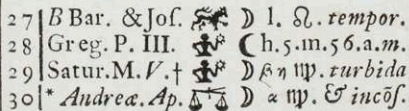 27 B Bar. & Joſ. ♌ ☽ l. ♌. tempor.
28 Greg. P. III. ☾ h. 5. m. 56. a.m.
29 Satur. M. V. † ☽ β η ♍. turbida
30 * Andreæ. Ap. ♎ ☽ α ♍. & incōſ.